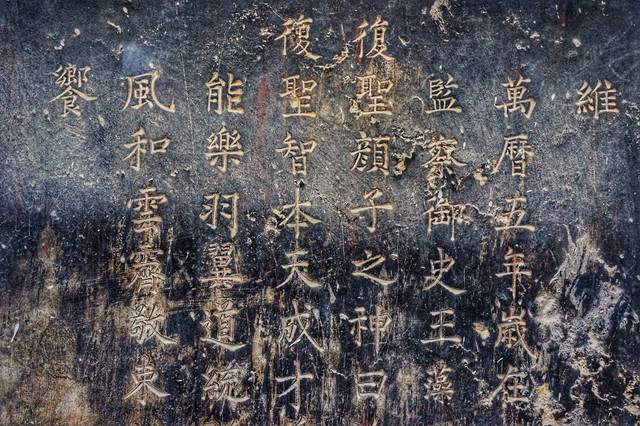 維
萬曆五年歲在
監察御史王藻
復聖顏子之神曰
復聖智本天成才
能樂羽翼道統
風和雲齊敬東
饗